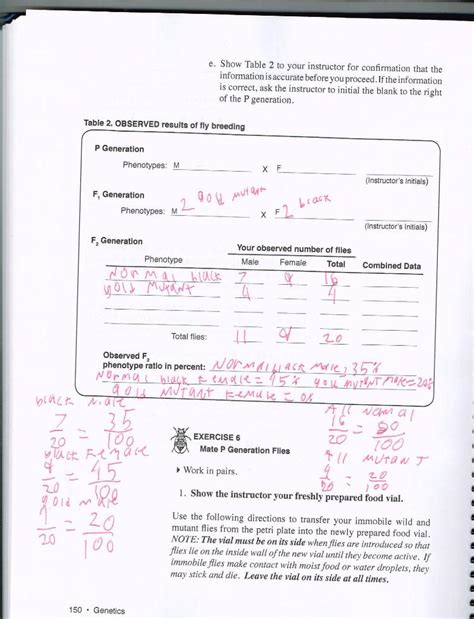 e. Show Table 2 to your instructor for confirmation that the
information is accurate before you proceed. If the information
is correct, ask the instructor to initial the blank to the right
of the P generation.
Table 2. OBSERVED results of fly breeding
P Generation
Phenotypes: M X F
(Instructor's Initials)
F1 Generation
Phenotypes: M 2 gold mutant X F 2 black
(Instructor's Initials)
F2 Generation
Your observed number of flies
Phenotype Male Female Total Combined Data
Normal black 7 9 16
gold mutant 4 4
Total flies: 11 9 20
Observed F2
phenotype ratio in percent: Normal black male, 35%
Normal black female = 45% gold mutant male = 20%
gold mutant female = 0%
black male
7/20 = 35/100
black female
9/20 = 45/100
gold male
4/20 = 20/100
All normal
16/20 = 80/100
All mutant
4/20 = 20/100
EXERCISE 6
Mate P Generation Flies
▸ Work in pairs.
1. Show the instructor your freshly prepared food vial.
Use the following directions to transfer your immobile wild and
mutant flies from the petri plate into the newly prepared food vial.
NOTE: The vial must be on its side when flies are introduced so that
flies lie on the inside wall of the new vial until they become active. If
immobile flies make contact with moist food or water droplets, they
may stick and die. Leave the vial on its side at all times.
150 • Genetics